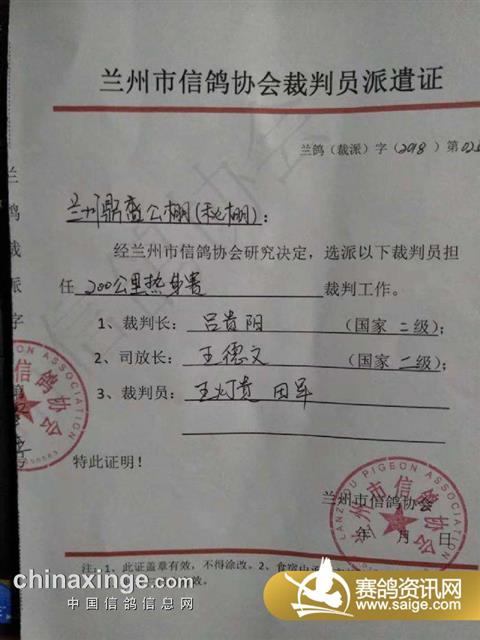 兰州市信鸽协会裁判员派遣证
兰鸽（裁派）字（2018）第02
兰州鼎盛公棚（秋棚）：
经兰州市信鸽协会研究决定，选派以下裁判员担
任 200公里热身赛 裁判工作。
1、裁判长： 吕贵阳 （国家 二级）；
2、司放长： 王德文 （国家 二级）；
3、裁判员： 王灯贵 田军
特此证明！
兰州市信鸽协会
年 月 日
注：1、此证盖章有效，不得涂改。2、食宿由
效。
兰鸽裁派字第
号
LANZHOU PIGEON ASSOCIATION
兰州市信鸽协会
PIGEON ASSOCIATION
信鸽协会
chinaxinge.com
中国信鸽信息网
赛鸽资讯网
www.saige.com